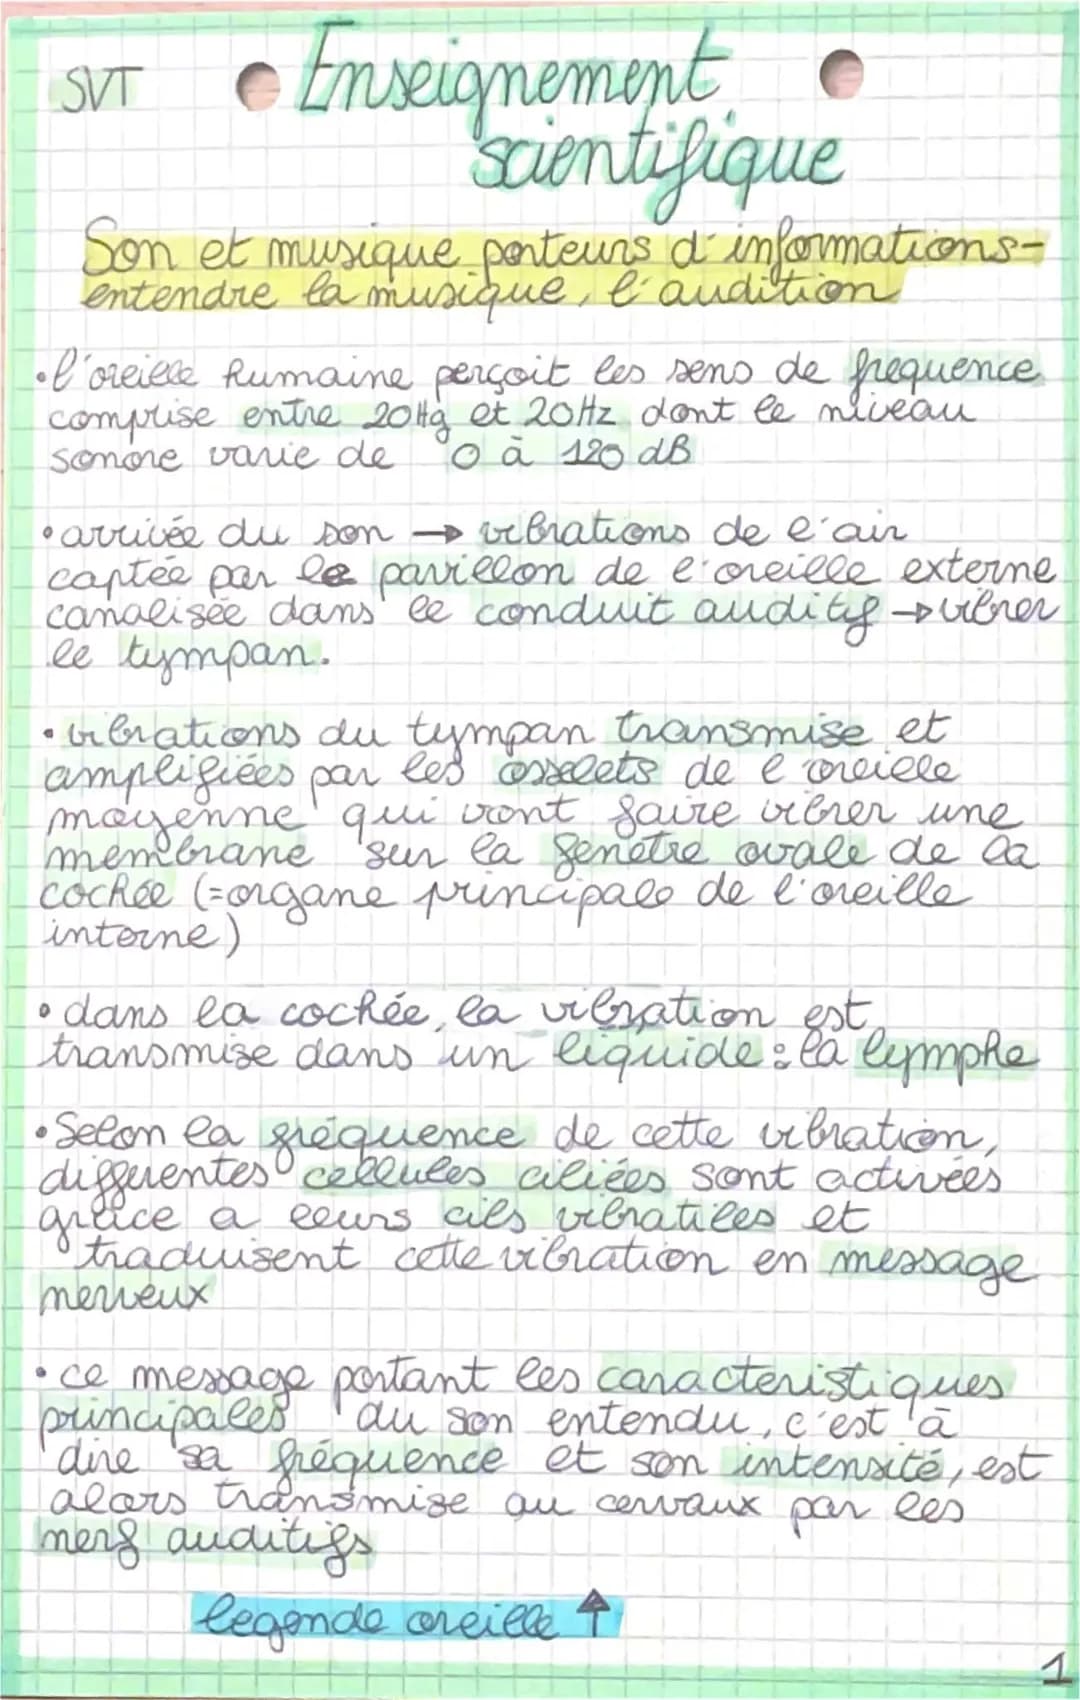 SVT
Enseignement
scientifique
Son et musique porteurs d'informations-
entendre la musique, l'audition
•l'oreille humaine perçoit les sens de frequence
comprise entre 20Hg et 20Hz dont le niveau
sonore varie de 0 à 120 dB
•arrivée du son → vibrations de l'air
captée par le pavillon de l'oreille externe
canalisée dans le conduit auditif → vibrer
le tympan.
•vibrations du tympan transmise et
amplifiées par les osselets de l'oreille
moyenne qui vont faire vibrer une
membrane sur la fenetre ovale de la
cochée (=organe principale de l'oreille
interne)
•dans la cochée, la vibration est
transmise dans un liquide : la lymphe
•Selon la fréquence de cette vibration,
differentes cellules ciliées sont activées
grâce a leurs cils vibratiles et
traduisent cette vibration en message
nerveux
•ce message portant les caracteristiques
principales du son entendu, c'est à
dire sa fréquence et son intensité, est
alors transmise au cervaux par les
nerf auditifs
legende oreille ↑
1